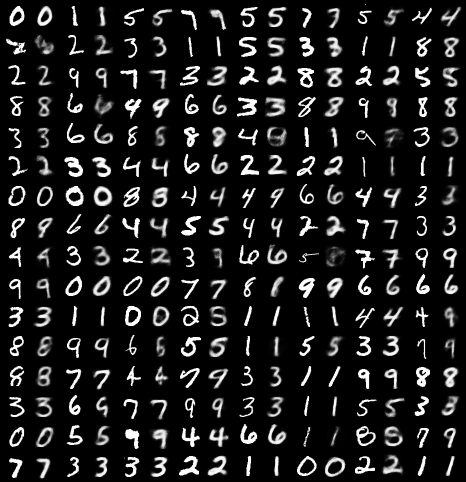 0 0 1 1 5 5 7 9 5 5 7 7 5 5 4 4
2 2 3 3 1 1 5 5 3 3 1 1 8 8
2 2 9 9 7 7 3 3 2 2 8 8 2 2 5 5
8 8 6 6 4 9 6 6 3 3 8 8 9 9 8 8
3 3 6 6 8 8 8 8 4 1 1 9 3 3
2 2 3 3 4 4 6 6 2 2 2 2 1 1 1 1
0 0 0 0 8 8 4 4 4 9 6 6 4 4 3 3
8 9 6 6 4 4 5 5 4 4 2 2 7 7 3 3
4 4 3 3 2 2 3 9 6 6 5 7 7 9 9
9 9 0 0 0 0 7 7 8 8 9 9 6 6 6 6
3 3 1 1 0 0 2 5 1 1 1 1 4 4 4 9
8 8 9 9 6 6 5 5 1 1 5 5 3 3 7 9
8 8 7 7 4 4 7 9 3 3 1 1 9 9 8 8
3 3 6 9 7 7 9 9 3 3 1 1 5 5 3 3
0 0 5 5 9 9 4 4 6 6 1 1 8 8 7 9
7 7 3 3 3 3 2 2 1 1 0 0 2 2 1 1